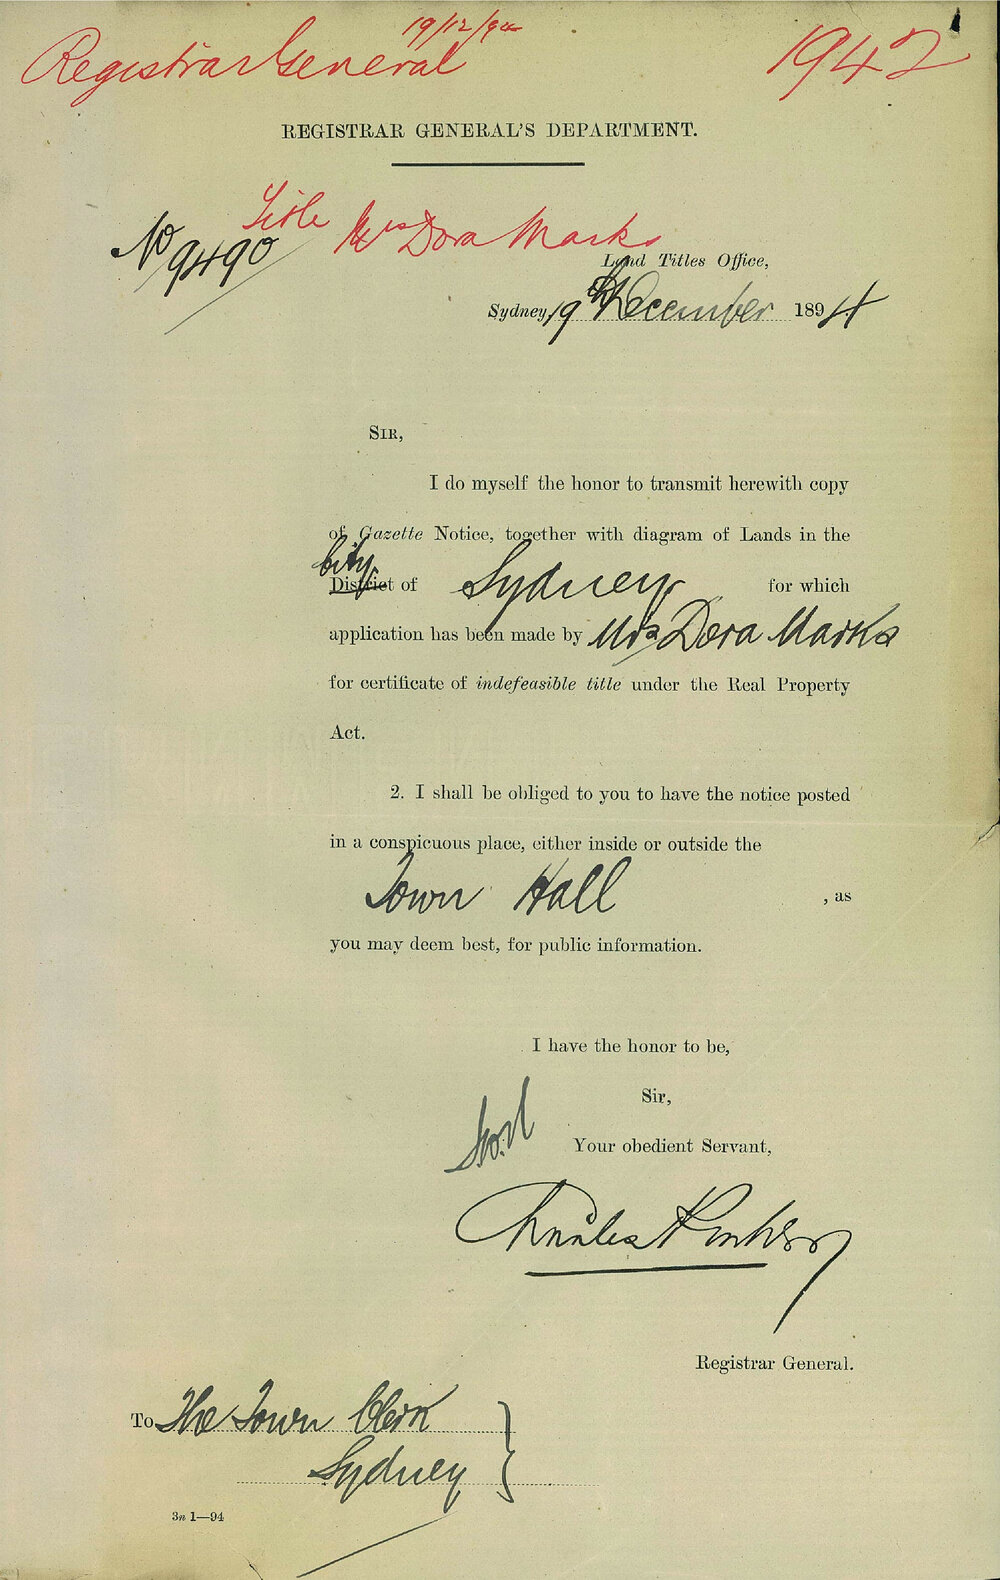 19/12/94
Registrar General 1942
REGISTRAR GENERAL'S DEPARTMENT.
Title Mrs Dora Marks
No 9490
Land Titles Office,
Sydney, 19th December 1894
SIR,
I do myself the honor to transmit herewith copy
of Gazette Notice, together with diagram of Lands in the
City
District of Sydney for which
application has been made by Mrs Dora Marks
for certificate of indefeasible title under the Real Property
Act.
2. I shall be obliged to you to have the notice posted
in a conspicuous place, either inside or outside the
Town Hall , as
you may deem best, for public information.
I have the honor to be,
Sir,
Your obedient Servant,
Charles
Registrar General.
To The Town Clerk
Sydney
3n 1—94